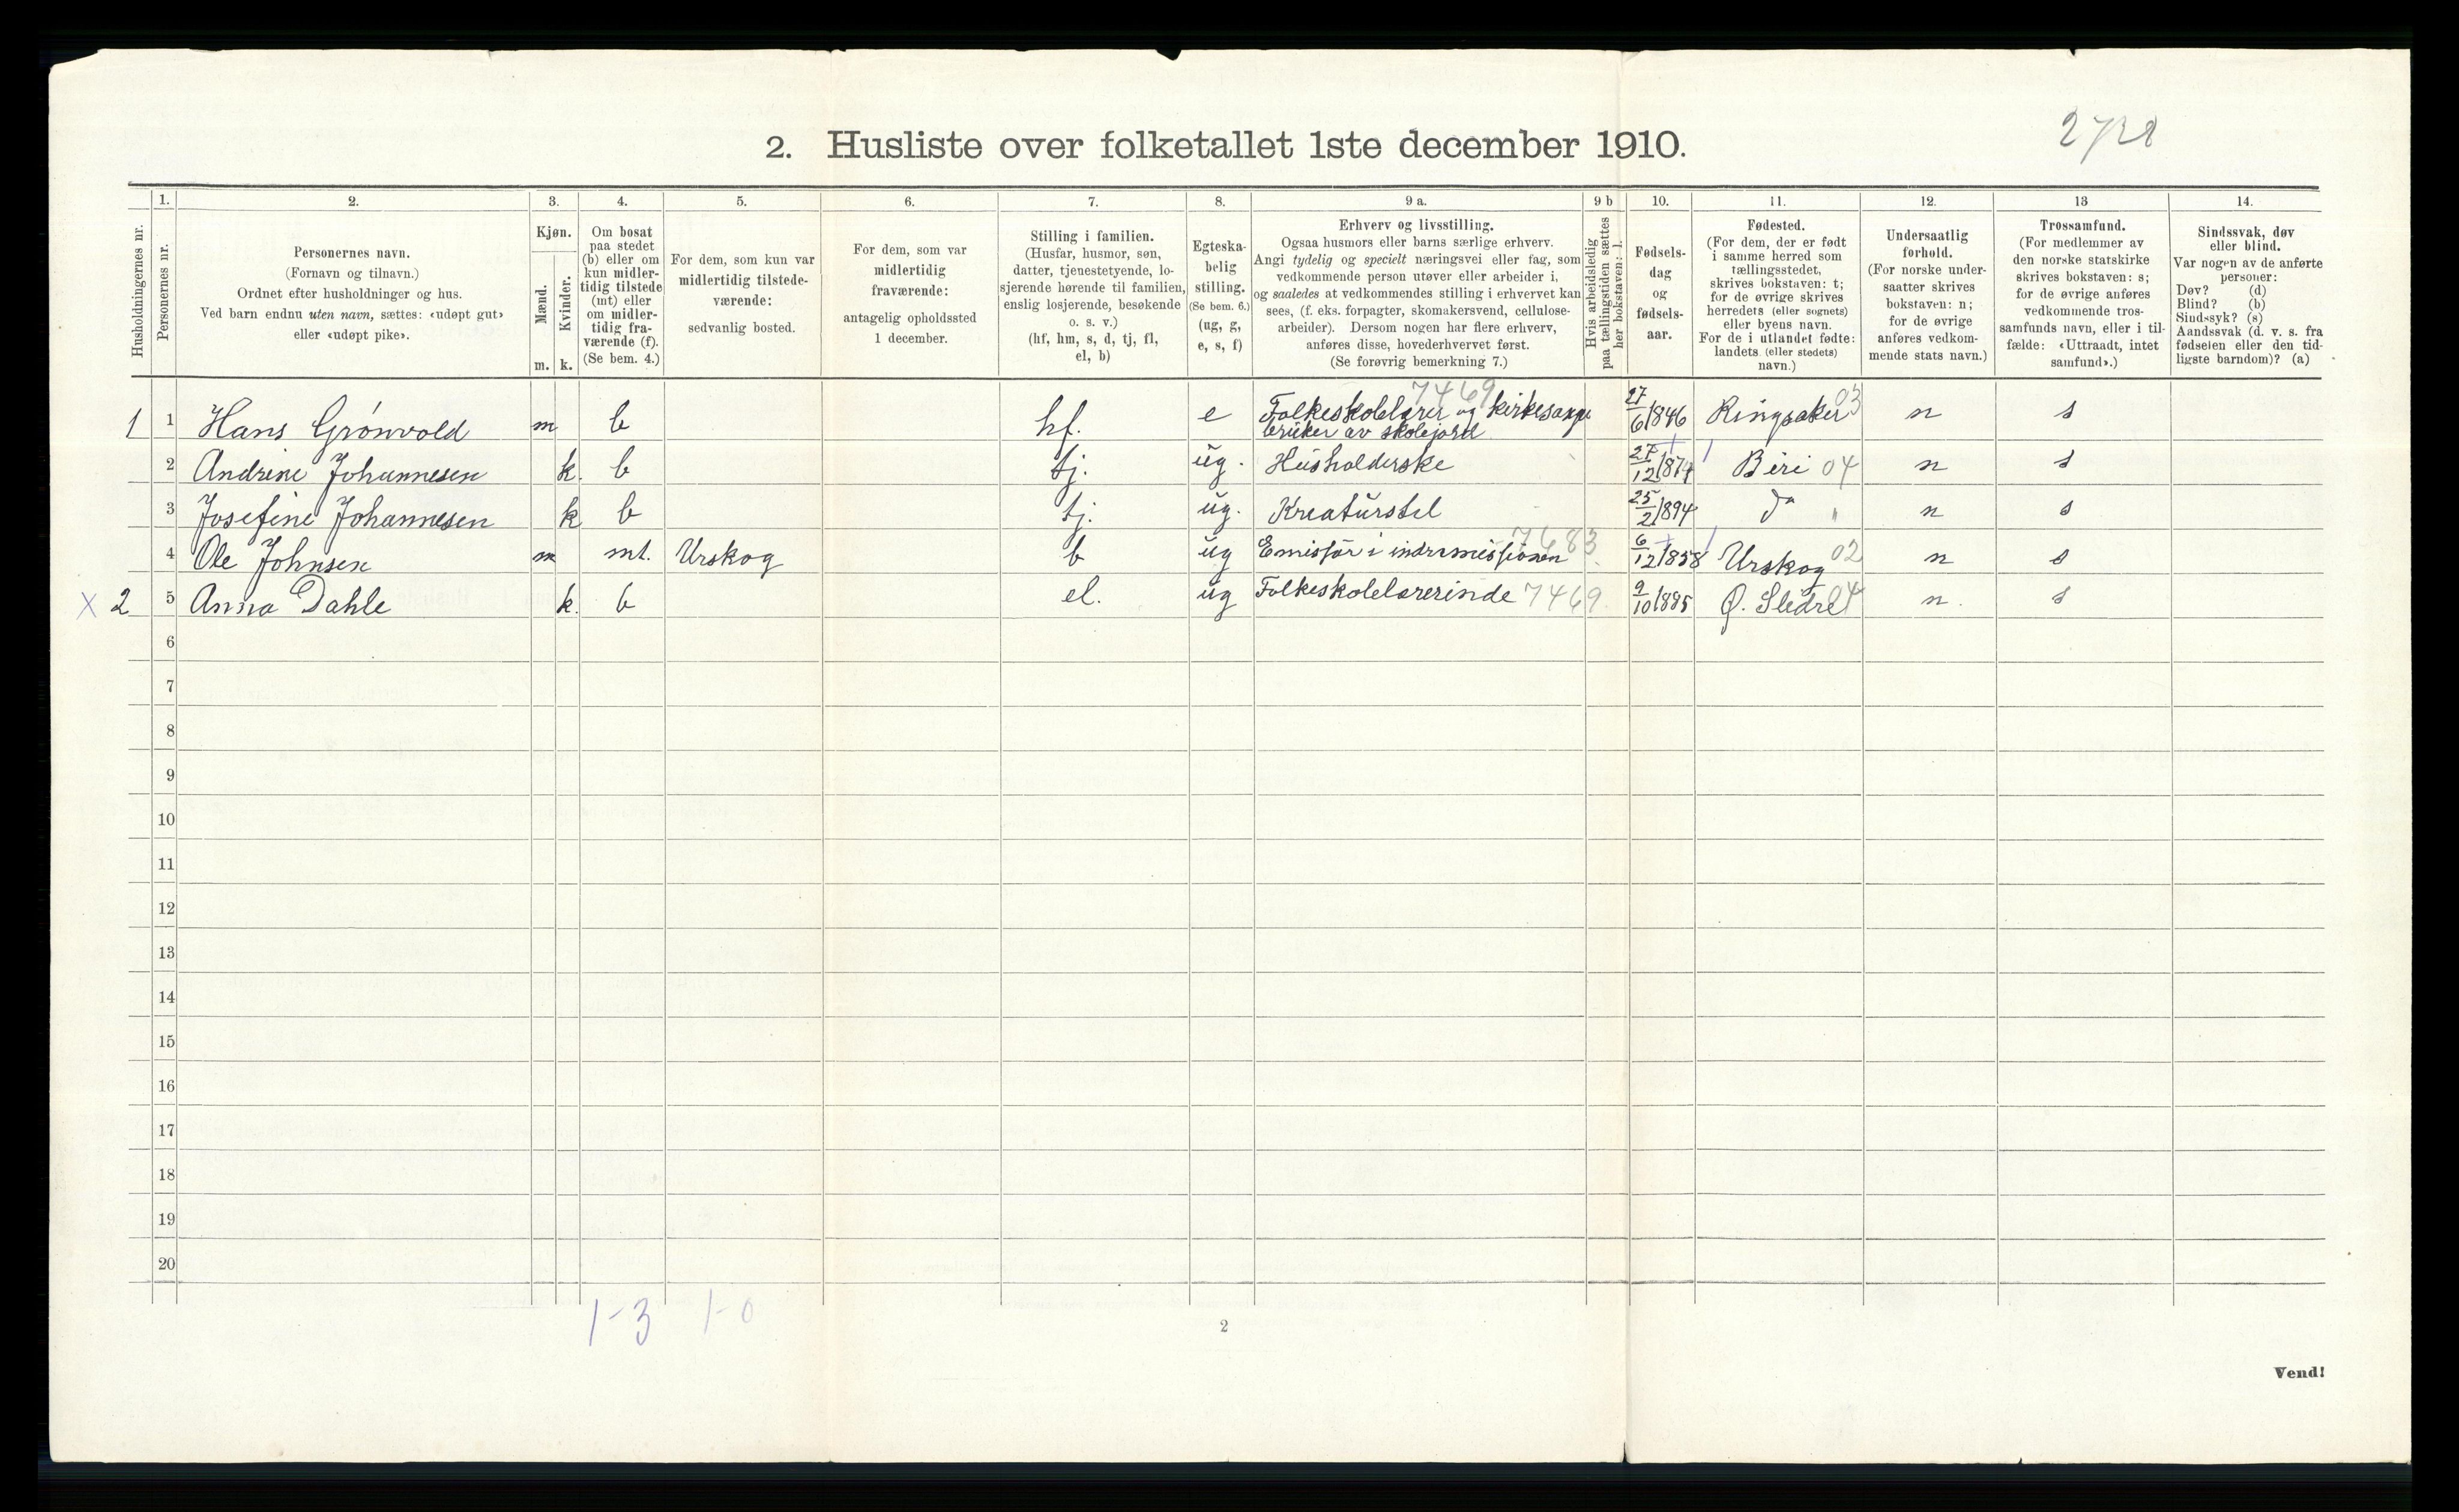 2728
2. Husliste over folketallet 1ste december 1910.
Husholdningernes nr.
1.
Personernes nr.
2.
Personernes navn.
(Fornavn og tilnavn.)
Ordnet efter husholdninger og hus.
Ved barn endnu uten navn, sættes: «udøpt gut»
eller «udøpt pike».
3.
Kjøn.
Mænd.
Kvinder.
m. k.
4.
Om bosat
paa stedet
(b) eller om
kun midler-
tidig tilstede
(mt) eller
om midler-
tidig fra-
værende (f).
(Se bem. 4.)
5.
For dem, som kun var
midlertidig tilstede-
værende:
sedvanlig bosted.
6.
For dem, som var
midlertidig
fraværende:
antagelig opholdssted
1 december.
7.
Stilling i familien.
(Husfar, husmor, søn,
datter, tjenestetyende, lo-
sjerende hørende til familien,
enslig losjerende, besøkende
o. s. v.)
(hf, hm, s, d, tj, fl,
el, b)
8.
Egteska-
belig
stilling.
(Se bem. 6.)
(ug, g,
e, s, f)
9 a.
Erhverv og livsstilling.
Ogsaa husmors eller barns særlige erhverv.
Angi tydelig og specielt næringsvei eller fag, som
vedkommende person utøver eller arbeider i,
og saaledes at vedkommendes stilling i erhvervet kan
sees, (f. eks. forpagter, skomakersvend, cellulose-
arbeider). Dersom nogen har flere erhverv,
anføres disse, hovederhvervet først.
(Se forøvrig bemerkning 7.)
9 b
Hvis arbeidsledig
paa tællingstiden sættes
her bokstaven: l.
10.
Fødsels-
dag
og
fødsels-
aar.
11.
Fødested.
(For dem, der er født
i samme herred som
tællingsstedet,
skrives bokstaven: t;
for de øvrige skrives
herredets (eller sognets)
eller byens navn.
For de i utlandet fødte:
landets (eller stedets)
navn.)
12.
Undersaatlig
forhold.
(For norske under-
saatter skrives
bokstaven: n;
for de øvrige
anføres vedkom-
mende stats navn.)
13
Trossamfund.
(For medlemmer av
den norske statskirke
skrives bokstaven: s;
for de øvrige anføres
vedkommende tros-
samfunds navn, eller i til-
fælde: «Uttraadt, intet
samfund».)
14.
Sindssvak, døv
eller blind.
Var nogen av de anførte
personer:
Døv? (d)
Blind? (b)
Sindssyk? (s)
Aandssvak (d. v. s. fra
fødselen eller den tid-
ligste barndom)? (a)
7469
1 1 Hans Grönvold m b hf. e Folkeskolelærer og kirkesange bruker av skolejord 27/6 1846 Ringsaker 03 n s
2 Andrine Johannesen k. b tj. ug. Husholderske 27/12 1874 Biri 04 n s
3 Josefine Johannesen k b tj. ug. Kreaturstel 25/2 1894 do " n s
4 Ole Johnsen m mt. Urskog b ug Emisær i indremissionen 7683 6/12 1858 Urskog 02 n s
X 2 5 Anna Dahle k. b el. ug Folkeskolelærerinde 7469 9/10 1885 Ø. Slidre 04 n. s
6
7
8
9
10
11
12
13
14
15
16
17
18
19
20
1-3 1-0
2
Vend!